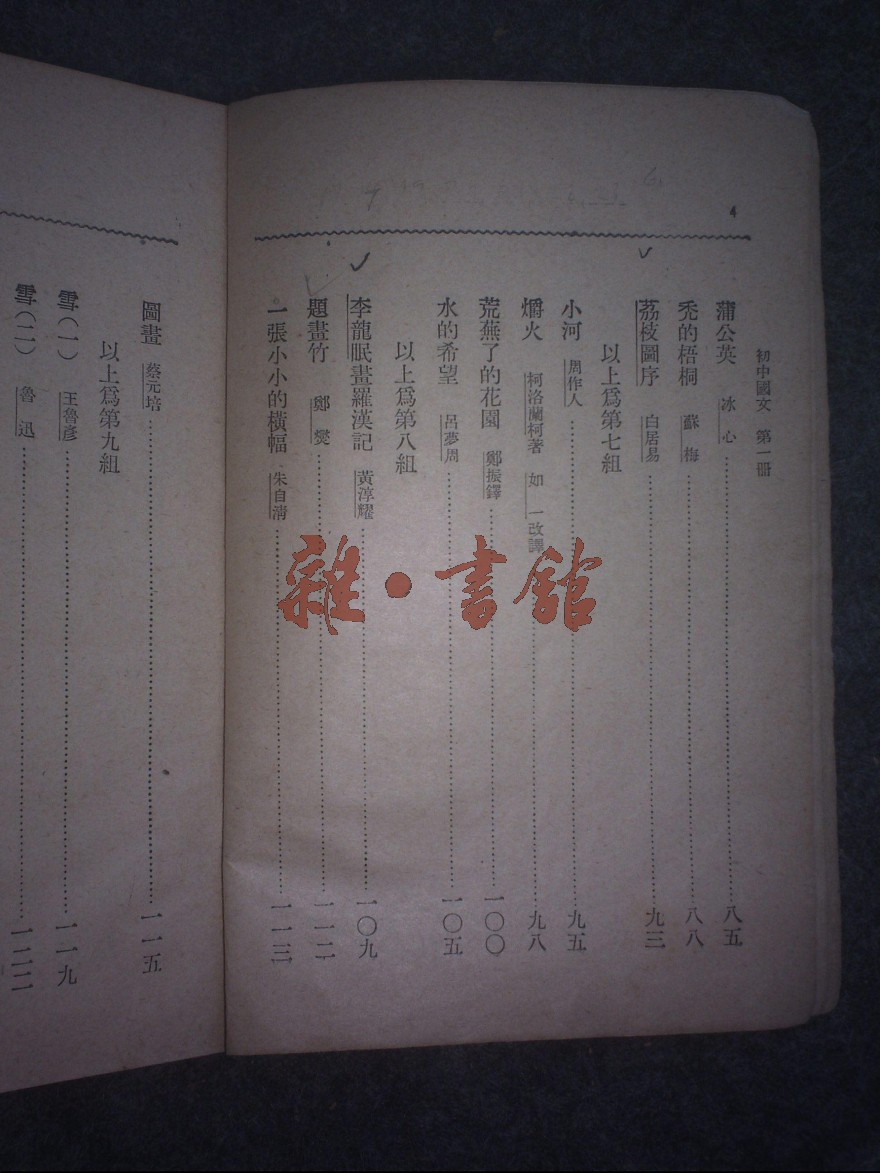 4
初中國文 第一册
蒲公英 冰心 八五
禿的梧桐 蘇梅 八八
荔枝圖序 白居易 九三
以上爲第七組
小河 周作人 九五
爝火 柯洛蘭柯著 如一改譯 九八
荒蕪了的花園 鄭振鐸 一〇〇
水的希望 呂夢周 一〇五
以上爲第八組
李龍眠畫羅漢記 黃淳耀 一〇九
題畫竹 鄭燮 一一二
一張小小的橫幅 朱自清 一一三
圖畫 蔡元培 一一五
以上爲第九組
雪(一) 王魯彥 一一九
雪(二) 魯迅 一二二
雜·書館